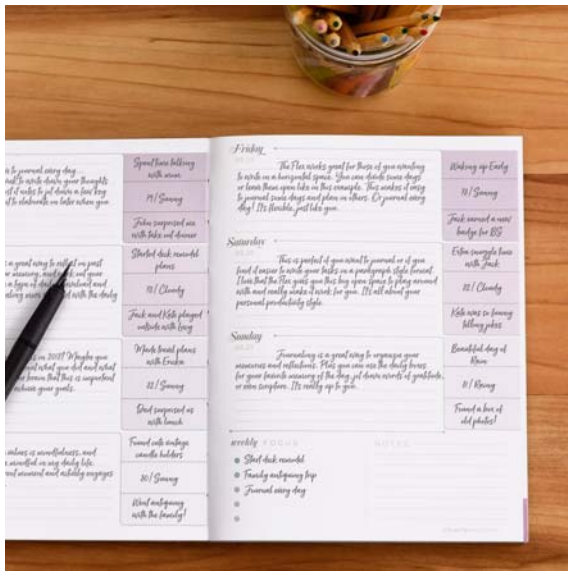 to journal every day
to write down your thoughts
of notes to jot down a few key
to elaborate on later when you
Spent time talking
with mom
79 / Sunny
John surprised me
with take out dinner
a great way to reflect on past
Started deck remodel
plans
78 / Cloudy
Jack and Kate played
outside with Levy
on 2018? Maybe you
what you did and what
brain that this is important
achieve your goals.
Made travel plans
with Ericka
82 / Sunny
Dad surprised us
with lunch
values is mindfulness, and
mindful in my daily life.
moment and actively engages
Found cute vintage
candle holders
80 / Sunny
Went antiquing
with the family!
Friday
The Flex works great for those of you wanting
to write on a horizontal space. You can divide some days
or leave them open like in this example. This makes it easy
to journal some days and plan in others. Or journal every
day! It's flexible, just like you.
Waking up Early
78 / Sunny
Jack earned a new
badge for BS
Saturday
This is perfect if you want to journal or if you
find it easier to write your tasks in a paragraph style format.
I love that the Flex gives you this big open space to play around
with and really make it work for you. It's all about your
personal productivity style.
Extra snuggle time
with Jack
82 / Cloudy
Kate was so funny
telling jokes
Sunday
Journaling is a great way to organize your
memories and reflections. Plus you can use the daily boxes
for your favorite memory of the day, jot down words of gratitude,
or even scripture. It's really up to you.
Beautiful day of
Rain
81 / Rainy
Found a box of
old photos!
weekly FOCUS
NOTES
Start deck remodel
Family antiquing trip
Journal every day